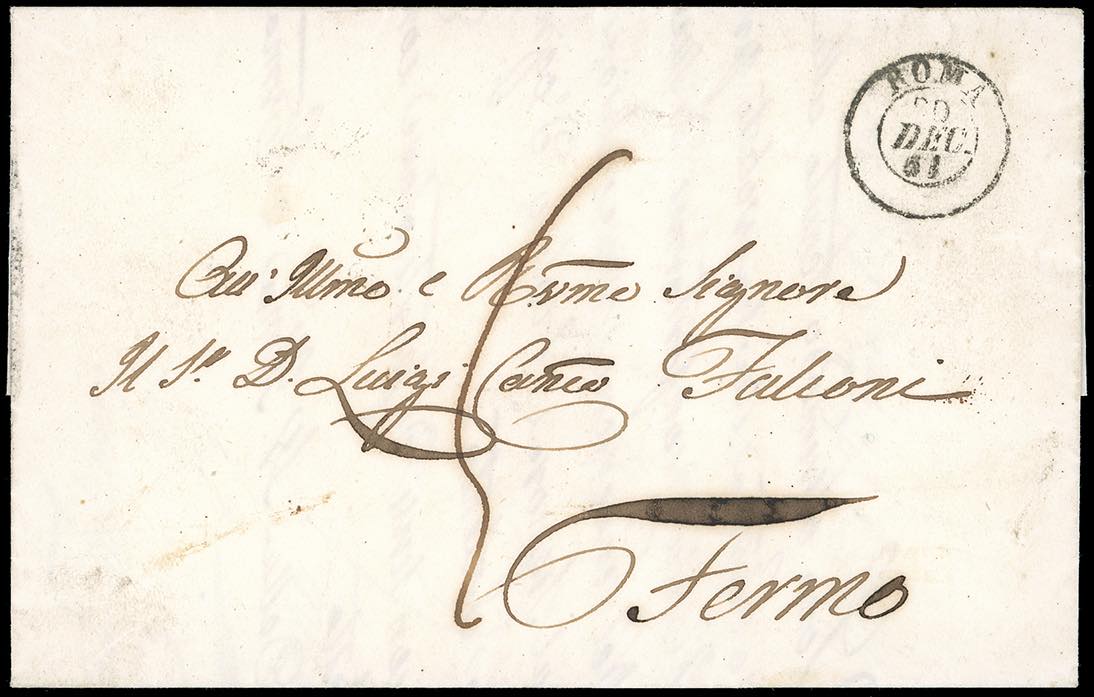 ROMA
20
DEC.
51
All' Illmo e Rvmo Signore
Il Sr. D. Luigi Canco Falconi
Fermo